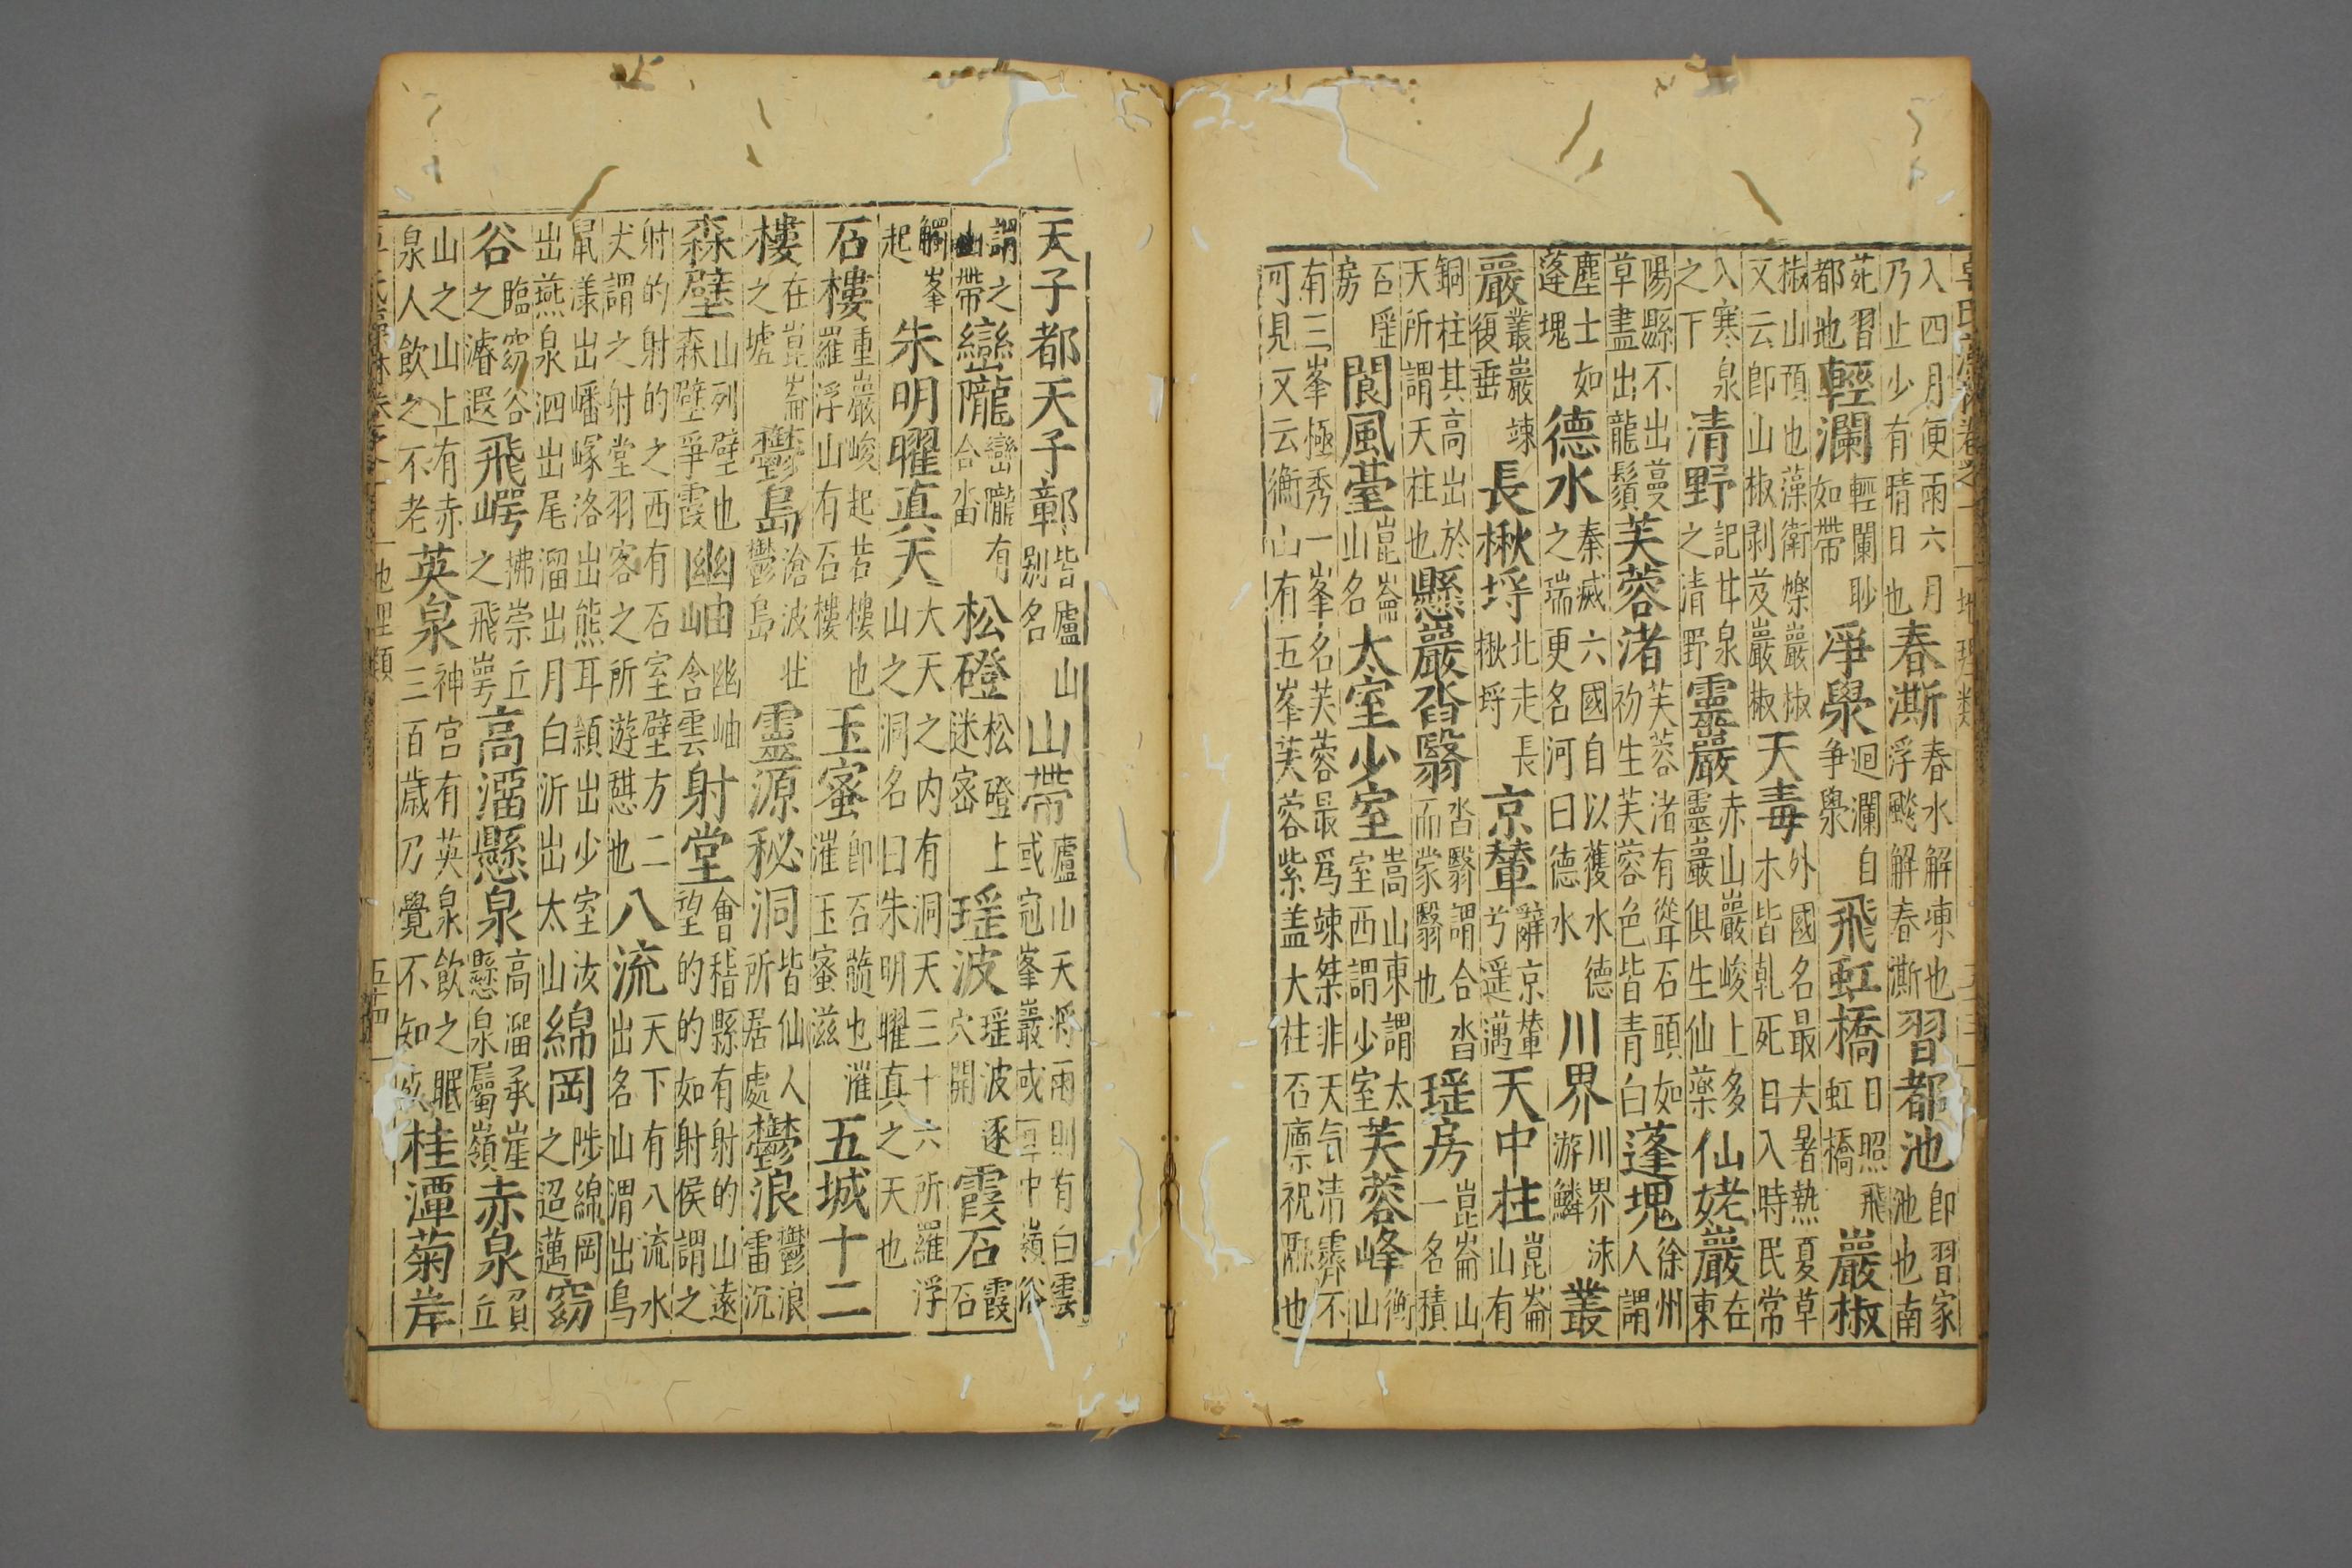 卓氏藻林卷之一 地理類
入四月便雨六月乃止少有晴日也春澌春水解凍也浮颷解春澌習都池即習家池也南
苑習都地輕瀾輕瀾眇如帶淨澩迴瀾自爭澩飛虹橋日照飛虹橋巖椒
椒山頂也藻衛爍巖椒又云即山椒剥芟巖椒天毒外國名最大暑熱夏草木皆乾死日入時民常
入寒泉之下清野記甘泉之清野靈巖赤山巖峻上多靈巖俱生仙藥仙姥巖在東
陽縣不出蔓草盡出龍鬚芙蓉渚芙蓉渚有聳石頭如初生芙蓉色皆青白蓬塊徐州人謂
塵土如蓬塊德水秦滅六國自以獲水德之瑞更名河曰德水川界川界泳游鱗叢
巖叢巖竦復垂長楸埒北走長楸埒京輦辭京輦兮遥邁天中柱崑崙山有
銅柱其高出於天所謂天柱也懸巖沓翳沓翳謂合沓而蒙翳也瑶房崑崙山一名積
石瑶房閬風臺崑崙山名太室少室嵩山東謂太室西謂少室芙蓉峰衡山
有三峯極秀一峯名芙蓉最爲竦桀非天気清霽不可見又云衡山有五峯芙蓉紫盖大柱石廩祝融也
天子都天子鄣皆廬山别名山帶廬山天將雨則有白雲或冠峯巖或亘中嶺俗
謂之山帶巒隴巒隴有合沓松磴松磴上迷密瑶波瑶波逐穴開霞石霞石
觸峯起朱明曜真天大天之内有洞天三十六所羅浮山之洞名曰朱明曜真之天也
石樓重巖峻起若樓也羅浮山有石樓玉蜜即石髓也漼漼玉蜜滋五城十二
樓在崑崙之墟鬱島滄波壮鬱島靈源秘洞皆仙人所居處鬱浪鬱浪雷沉
森壁山列壁也森壁爭霞幽岫幽岫含雲射堂會稽縣有射的山遠望的的如射侯謂之
射的射的之西有石室壁方二犬謂之射堂羽客之所遊憇也八流天下有八流水出名山渭出鳥
鼠漾出嶓冢洛出熊耳潁出少室汝出燕泉泗出出尾溜出月白沂出太山綿岡陟綿岡之迢邁窈
谷臨窈谷之濬遐飛崿拂崇丘之飛崿高溜懸泉高溜承崖懸泉屬嶺赤泉員丘
山之山上有赤泉人飲之不老英泉神宫有英泉飲之眠三百歳乃覺不知死桂潭菊岸
地理類 五十四